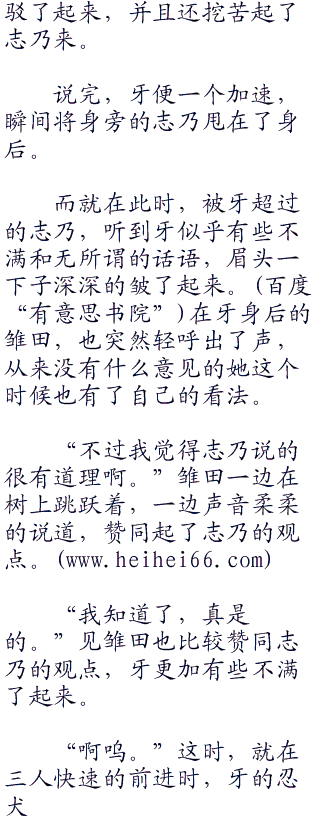 驳了起来，并且还挖苦起了
志乃来。
说完，牙便一个加速，
瞬间将身旁的志乃甩在了身
后。
而就在此时，被牙超过
的志乃，听到牙似乎有些不
满和无所谓的话语，眉头一
下子深深的皱了起来。(百度
“有意思书院”)在牙身后的
雏田，也突然轻呼出了声，
从来没有什么意见的她这个
时候也有了自己的看法。
“不过我觉得志乃说的
很有道理啊。”雏田一边在
树上跳跃着，一边声音柔柔
的说道，赞同起了志乃的观
点。(www.heihei66.com)
“我知道了，真是
的。”见雏田也比较赞同志
乃的观点，牙更加有些不满
了起来。
“啊呜。”这时，就在
三人快速的前进时，牙的忍
犬